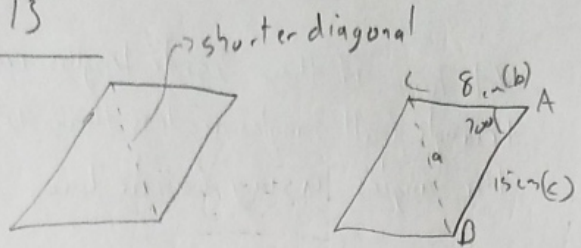 13
shorter diagonal
C
8cm(b)
A
70°
a
15cm(c)
B